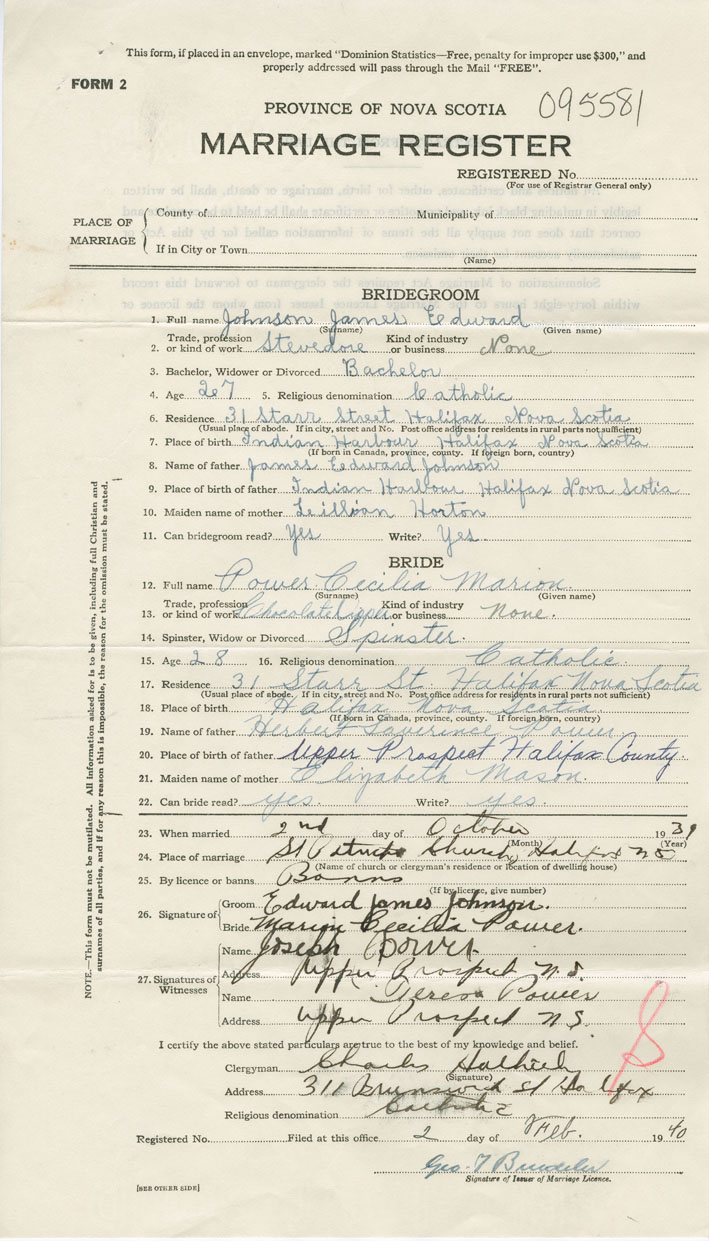 This form, if placed in an envelope, marked "Dominion Statistics—Free, penalty for improper use $300," and
properly addressed will pass through the Mail "FREE".
FORM 2
PROVINCE OF NOVA SCOTIA 095581
MARRIAGE REGISTER
REGISTERED No.
(For use of Registrar General only)
PLACE OF MARRIAGE
County of Municipality of
If in City or Town
(Name)
BRIDEGROOM
1. Full name Johnson James Edward
(Surname) (Given name)
2. Trade, profession or kind of work Stevedore Kind of industry or business None
3. Bachelor, Widower or Divorced Bachelor
4. Age 27 5. Religious denomination Catholic
6. Residence 31 Starr Street Halifax Nova Scotia
(Usual place of abode. If in city, street and No. Post office address for residents in rural parts not sufficient)
7. Place of birth Indian Harbour Halifax Nova Scotia
(If born in Canada, province, county. If foreign born, country)
8. Name of father James Edward Johnson
9. Place of birth of father Indian Harbour Halifax Nova Scotia
10. Maiden name of mother Leilloan Horton
11. Can bridegroom read? Yes Write? Yes
BRIDE
12. Full name Power Cecilia Marion
(Surname) (Given name)
13. Trade, profession or kind of work Chocolate dipper Kind of industry or business none.
14. Spinster, Widow or Divorced Spinster.
15. Age 28 16. Religious denomination Catholic.
17. Residence 31 Starr St. Halifax Nova Scotia
(Usual place of abode. If in city, street and No. Post office address for residents in rural parts not sufficient)
18. Place of birth Halifax Nova Scotia
(If born in Canada, province, county. If foreign born, country)
19. Name of father Herbert Laverince Power
20. Place of birth of father Upper Prospect Halifax County.
21. Maiden name of mother Elizabeth Mason.
22. Can bride read? yes. Write? yes.
23. When married 2nd day of October 1939
(Month) (Year)
24. Place of marriage St Patricks Church, Halifax NS
(Name of church or clergyman's residence or location of dwelling house)
25. By licence or banns Banns
(If by licence, give number)
26. Signature of
Groom Edward James Johnson.
Bride Marion Cecilia Power.
27. Signatures of Witnesses
Name Joseph Power
Address Upper Prospect N.S.
Name Teresa Power
Address Upper Prospect N.S.
I certify the above stated particulars are true to the best of my knowledge and belief.
Clergyman Charles
(Signature)
Address 311 Brunswick St Halifax
Religious denomination Catholic
Registered No. Filed at this office 2 day of Feb. 1940
Geo. T
Signature of Issuer of Marriage Licence.
[SEE OTHER SIDE]
NOTE.—This form must not be mutilated. All information asked for is to be given, including full Christian and
surnames of all parties, and if for any reason this is impossible, the reason for the omission must be stated.